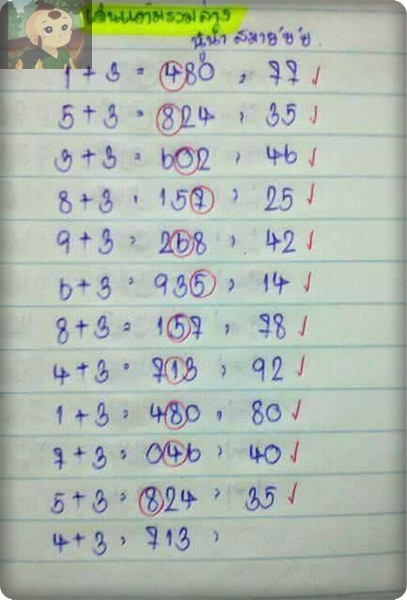 เด่นแต้มรวมล่าง
1 + 3 = 480, 77 ✓
5 + 3 = 824, 35 ✓
3 + 3 = 602, 46 ✓
8 + 3 = 157, 25 ✓
9 + 3 = 268, 42 ✓
6 + 3 = 935, 14 ✓
8 + 3 = 157, 78 ✓
4 + 3 = 713, 92 ✓
1 + 3 = 480, 80 ✓
7 + 3 = 046, 40 ✓
5 + 3 = 824, 35 ✓
4 + 3 = 713,